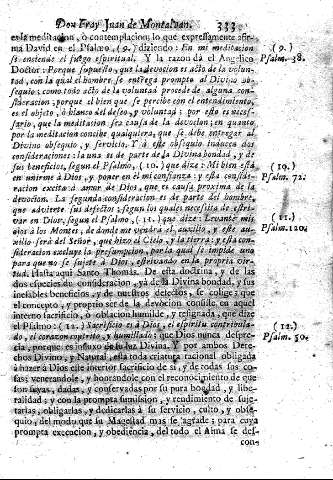 Don Fray Juan de Montalvan. 333
es la meditacion, ò contemplacion; lo que expressamente afir-
ma David en el Psalmo, (9.) diziendo: En mi meditacion
se enciende el fuego espiritual. Y la razon dà el Angelico
Doctor: Porque supuesto, que la devocion es acto de la volun-
tad, con la qual el hombre se entrega prompto al Divino ob-
sequio; como todo acto de la voluntad procede de alguna con-
sideracion, porque el bien que se percibe con el entendimiento,
es el objeto, ò blanco del deseo, y voluntad; por esto es neces-
sario, que la meditacion sea causa de la devocion; en quanto
por la meditacion concibe qualquiera, que se debe entregar al
Divino obsequio, y servicio. Y à este obsequio induce dos
consideraciones: la una es de parte de la Divina bondad, y de
sus beneficios, segun el Psalmo, (10.) que dize: Mi bien està
en unirme à Dios, y poner en èl mi confianza: y esta conside-
racion excita à amor de Dios, que es causa proxima de la
devocion. La segunda consideracion es de parte del hombre,
que advierte sus defectos; segun los quales necessita de estri-
var en Dios, segun el Psalmo, (11.) que dize: Levantè mis
ojos à los Montes, de donde me vendrà el auxilio, y este au-
xilio serà del Señor, que hizo el Cielo, y la tierra; y esta con-
sideracion excluye la presumpcion, por la qual se impide uno
para que no se sujete à Dios, estrivando en la propria vir-
tud. Hasta aqui Santo Thomàs. De esta doctrina, y de las
dos especies de consideracion, yà de la Divina bondad, y sus
inefables beneficios, y de nuestros defectos, se colige; que
el concepto, y proprio ser de la devocion consiste en aquel
interno sacrificio, ò oblacion humilde, y resignada, que dize
el Psalmo: (12.) Sacrificio es à Dios, el espiritu contribula-
do, el corazon contrito, y humillado: que Dios nunca despre-
cia, porque es influxo de su luz Divina. Y por ambos Dere-
chos Divino, y Natural, està toda criatura racional obligada
à hazer à Dios este interior sacrificio de sì, y de todas sus co-
sas; venerandole, y honrandole con el reconocimiento de que
son suyas, dadas, y conservadas por su pura bondad, y libe-
ralidad; y con la prompta sumission, y rendimiento de suje-
tarlas, obligarlas, y dedicarlas à su servicio, culto, y obse-
quio, del modo que su Magestad mas se agrade; para cuya
prompta execucion, y obediencia, del todo el Alma se des-
con-
(9.)
Psalm. 38.
(10.)
Psalm. 72.
(11.)
Psalm. 120.
(12.)
Psalm. 50.